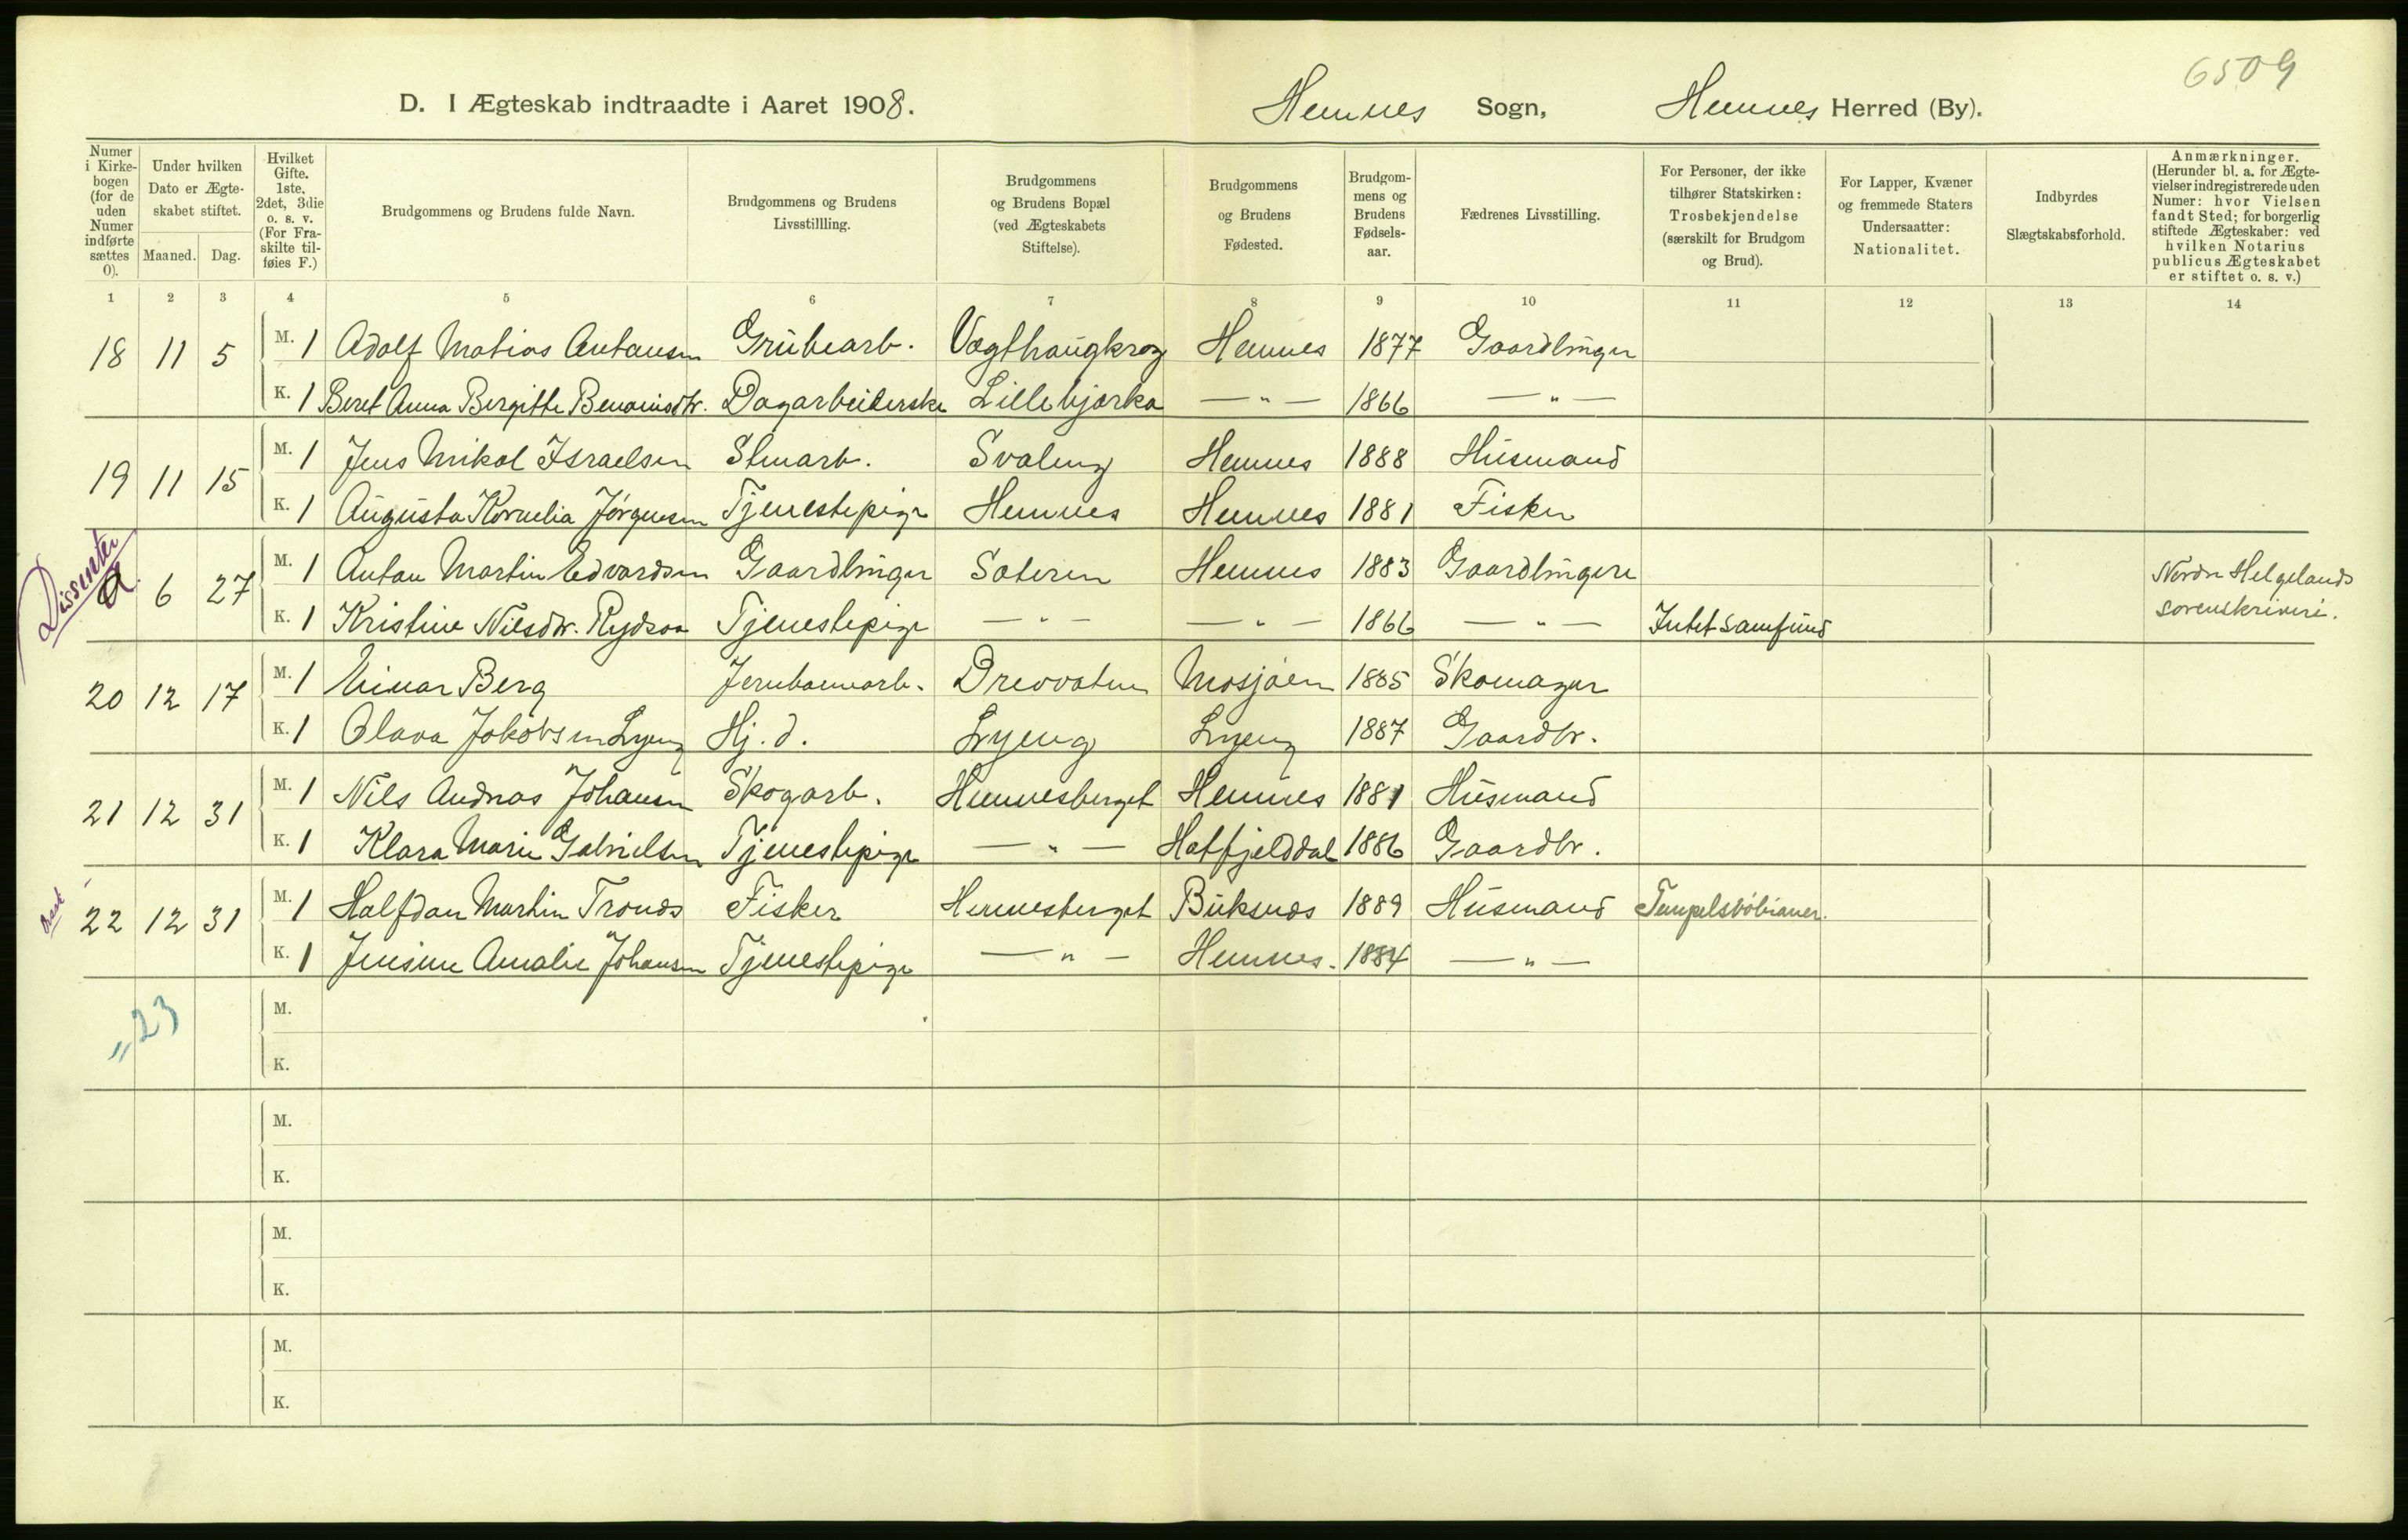 6509
D. I Ægteskab indtraadte i Aaret 1908. Hemnes Sogn, Hemnes Herred (By).
Numer i Kirkebogen (for de uden Numer indførte sættes 0).
Under hvilken Dato er Ægteskabet stiftet.
Maaned. Dag.
Hvilket Gifte. 1ste, 2det, 3die o. s. v. (For Fraskilte tilføies F.)
Brudgommens og Brudens fulde Navn.
Brudgommens og Brudens Livsstillling.
Brudgommens og Brudens Bopæl (ved Ægteskabets Stiftelse).
Brudgommens og Brudens Fødested.
Brudgommens og Brudens Fødselsaar.
Fædrenes Livsstilling.
For Personer, der ikke tilhører Statskirken: Trosbekjendelse (særskilt for Brudgom og Brud).
For Lapper, Kvæner og fremmede Staters Undersaatter: Nationalitet.
Indbyrdes Slægtskabsforhold.
Anmærkninger. (Herunder bl. a. for Ægtevielser indregistrerede uden Numer: hvor Vielsen fandt Sted; for borgerlig stiftede Ægteskaber: ved hvilken Notarius publicus Ægteskabet er stiftet o. s. v.)
1 2 3 4 5 6 7 8 9 10 11 12 13 14
18 11 5 M. 1 Adolf Matias Antonsen Grubearb. Vagthaugkrog Hemnes 1877 Gaardbruger
K. 1 Beret Anna Bergitte Dagarbeiderske Lillebjerka — " — 1866 — " —
19 11 15 M. 1 Jens Mikal Israelsen Stenarb. Svaleng Hemnes 1888 Husmand
K. 1 Augusta Kornelia Jørgensen Tjenestepige Hemnes Hemnes 1881 Fisker
Dissenter
6 27 M. 1 Anton Martin Edvardsen Gaardbruger Sæteren Hemnes 1883 Gaardbrugere
Nordre Helgelands
K. 1 Kristine Nilsdtr. Tjenestepige — " — — " — 1866 — " — Intet samfund
sorenskriveri.
20 12 17 M. 1 Einar Berg Jernbanearb. Drevvatne Mosjøen 1885 Skomager
K. 1 Olava Jakobsen Lyeng Hj. d. Lyeng Lyeng 1887 Gaardbr.
21 12 31 M. 1 Nils Andreas Johansen Skogarb. Hemnesberget Hemnes 1881 Husmand
K. 1 Klara Marie Gabrielsen Tjenestepige — " — Hatfjelddal 1886 Gaardbr.
22 12 31 M. 1 Halfdan Martin Tronds Fisker Hemnesberget Buksnes 1889 Husmand
K. 1 Jensine Amalie Johansen Tjenestepige — " — Hemnes. 1884 — " —
M.
" 23
K.
M.
K.
M.
K.
M.
K.